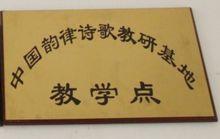 中国韵律诗歌教研基地
教学点